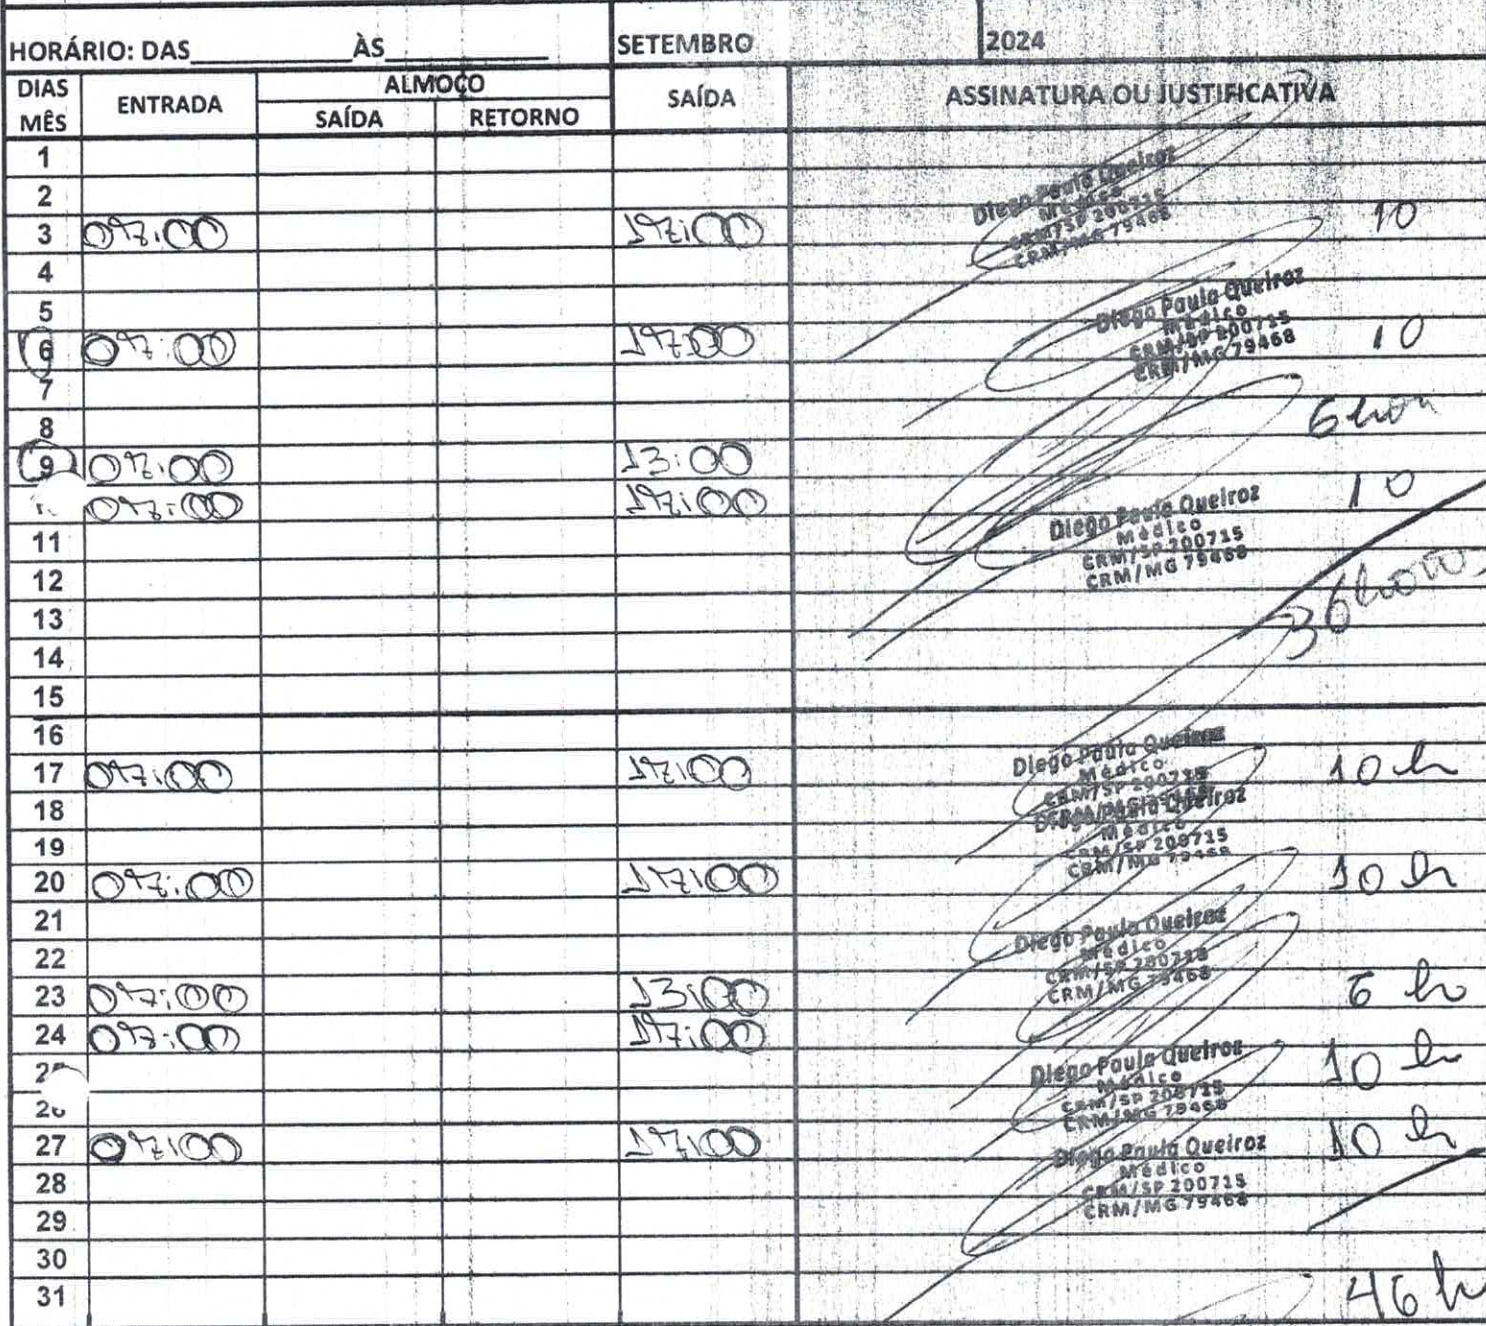 HORÁRIO: DAS____________ÀS____________ SETEMBRO 2024
DIAS MÊS ENTRADA ALMOÇO SAÍDA ASSINATURA OU JUSTIFICATIVA
SAÍDA RETORNO
1
2
Diego Paula Queiroz
Médico
CRM/SP 200715
CRM/MG 79468
3 07:00 17:00 10
4
5
Diego Paula Queiroz
Médico
CRM/SP 200715
CRM/MG 79468
6 07:00 17:00 10
7
8
9 07:00 13:00 6
07:00 17:00 10
Diego Paula Queiroz
Médico
CRM/SP 200715
CRM/MG 79468
11
12
13 36
14
15
16
Diego Paula Queiroz
Médico
CRM/SP 200715
17 07:00 17:00 10 h
18
Diego Paula Queiroz
Médico
CRM/SP 200715
CRM/MG 79468
19
20 07:00 17:00 10 h
21
Diego Paula Queiroz
Médico
CRM/SP 200715
CRM/MG 79468
22
23 07:00 13:00 6 h
24 07:00 17:00 10 h
Diego Paula Queiroz
Médico
CRM/SP 200715
CRM/MG 79468
27 07:00 17:00 10 h
Diego Paula Queiroz
Médico
CRM/SP 200715
CRM/MG 79468
28
29
30
31 46 h